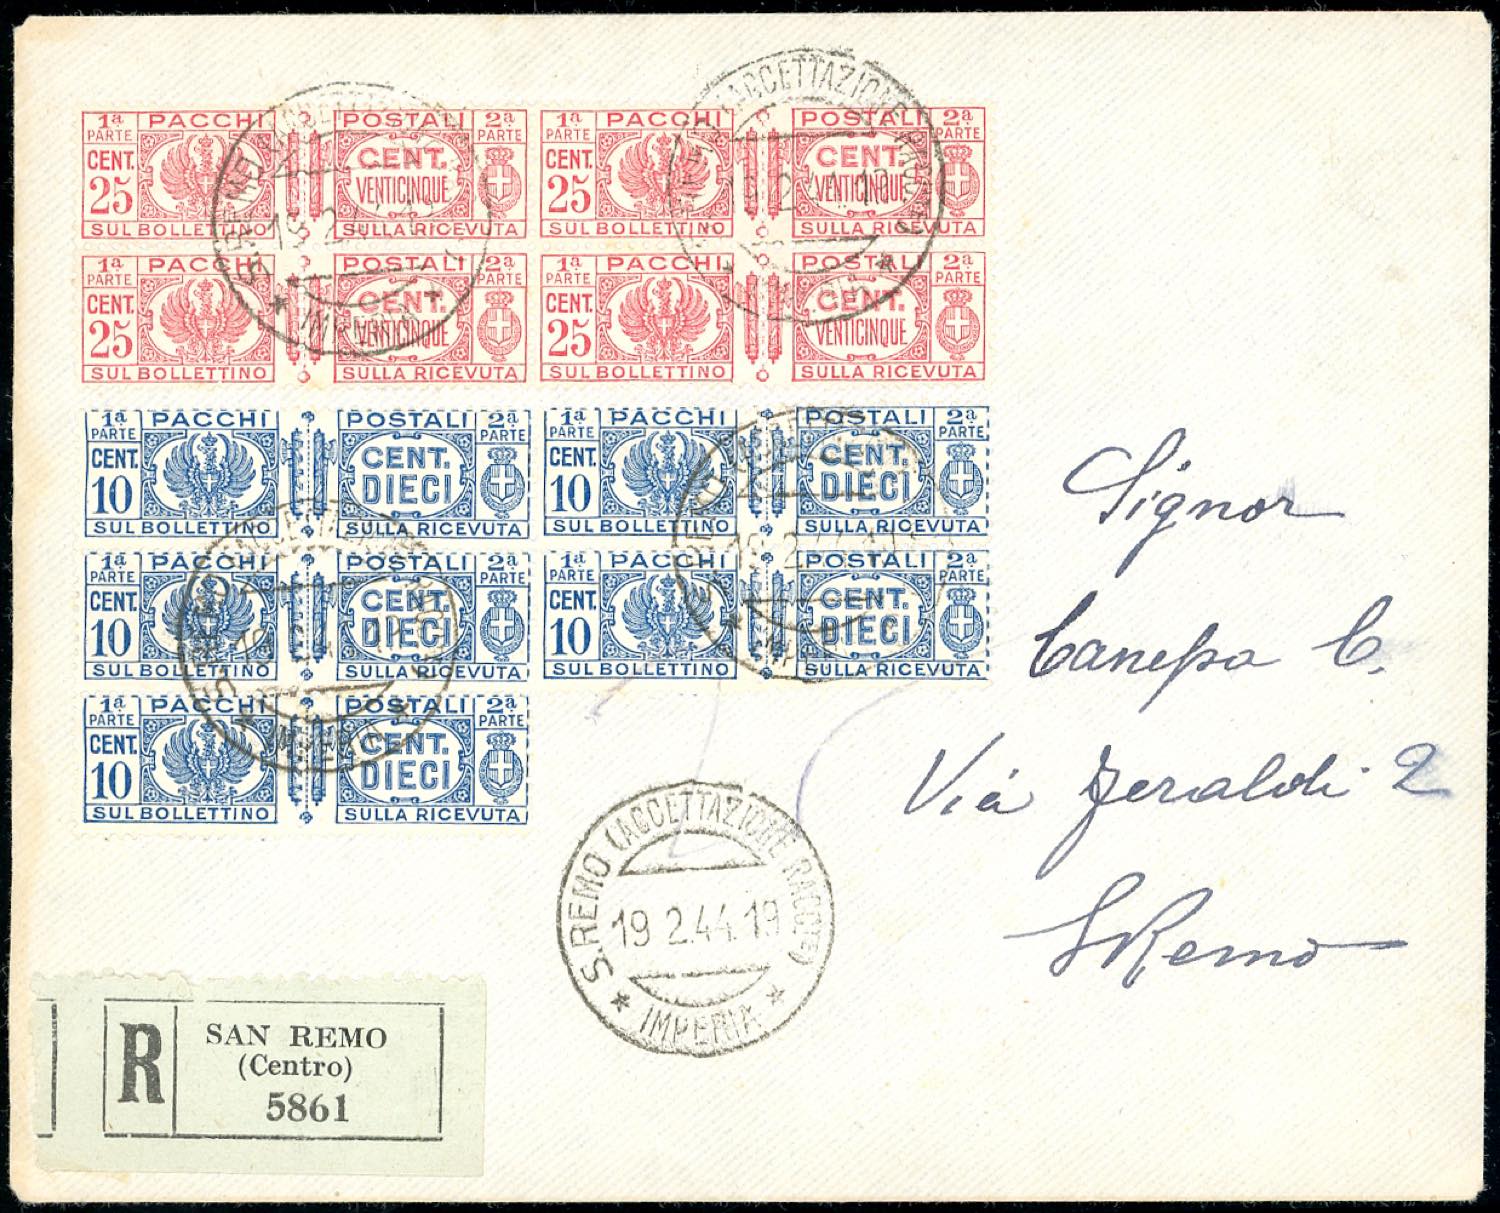 1ª PARTE PACCHI POSTALI 2ª PARTE 1ª PARTE PACCHI POSTALI 2ª PARTE
CENT. 25 CENT. VENTICINQUE CENT. 25 CENT. VENTICINQUE
SUL BOLLETTINO SULLA RICEVUTA SUL BOLLETTINO SULLA RICEVUTA
1ª PARTE PACCHI POSTALI 2ª PARTE 1ª PARTE PACCHI POSTALI 2ª PARTE
CENT. 25 CENT. VENTICINQUE CENT. 25 CENT. VENTICINQUE
SUL BOLLETTINO SULLA RICEVUTA SUL BOLLETTINO SULLA RICEVUTA
1ª PARTE PACCHI POSTALI 2ª PARTE 1ª PARTE PACCHI POSTALI 2ª PARTE
CENT. 10 CENT. DIECI CENT. 10 CENT. DIECI
SUL BOLLETTINO SULLA RICEVUTA SUL BOLLETTINO SULLA RICEVUTA
1ª PARTE PACCHI POSTALI 2ª PARTE 1ª PARTE PACCHI POSTALI 2ª PARTE
CENT. 10 CENT. DIECI CENT. 10 CENT. DIECI
SUL BOLLETTINO SULLA RICEVUTA SUL BOLLETTINO SULLA RICEVUTA
1ª PARTE PACCHI POSTALI 2ª PARTE
CENT. 10 CENT. DIECI
SUL BOLLETTINO SULLA RICEVUTA
Signor
Canepa C.
Via Jeraldi 2
S Remo
S. REMO (ACCETTAZIONE RACCTE)
19 2.44.19
* IMPERIA *
R
SAN REMO
(Centro)
5861